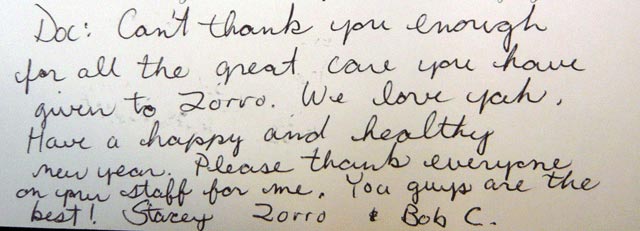 Doc: Can't thank you enough
for all the great care you have
given to Zorro. We love yah.
Have a happy and healthy
new year. Please thank everyone
on your staff for me. You guys are the
best! Stacey Zorro & Bob C.